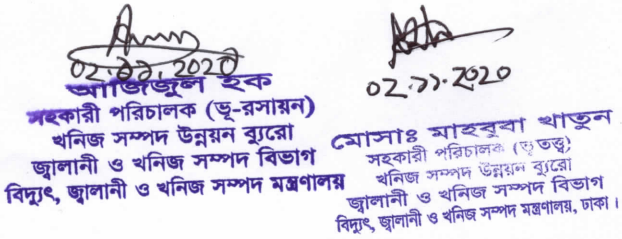 02.১১.2020
আজিজুল হক
সহকারী পরিচালক (ভূ-রসায়ন)
খনিজ সম্পদ উন্নয়ন ব্যুরো
জ্বালানী ও খনিজ সম্পদ বিভাগ
বিদ্যুৎ, জ্বালানী ও খনিজ সম্পদ মন্ত্রণালয়
02.১১.2020
মোসাঃ মাহবুবা খাতুন
সহকারী পরিচালক (ভূ তত্ত্ব)
খনিজ সম্পদ উন্নয়ন ব্যুরো
জ্বালানী ও খনিজ সম্পদ বিভাগ
বিদ্যুৎ, জ্বালানী ও খনিজ সম্পদ মন্ত্রণালয়, ঢাকা।